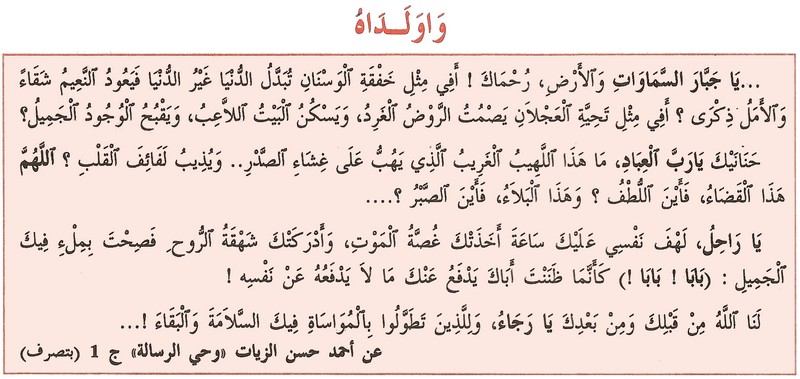 وَاوَلَـدَاهُ
...يَا جَبَّارَ السَّمَاوَاتِ وَٱلْأَرْضِ، رُحْمَاكَ ! أَفِي مِثْلِ خَفْقَةِ ٱلْوَسْنَانِ تُبَدَّلُ الدُّنْيَا غَيْرُ الدُّنْيَا فَيَعُودُ ٱلنَّعِيمُ شَقَاءً
وَٱلْأَمَلُ ذِكْرَى ؟ أَفِي مِثْلِ تَحِيَّةِ ٱلْعَجْلَانِ يَصْمُتُ الرَّوْضُ ٱلْغَرِدُ، وَيَسْكُنُ ٱلْبَيْتُ اللاَّعِبُ، وَيَقْبُحُ ٱلْوُجُودُ ٱلْجَمِيلُ؟
حَنَانَيْكَ يَارَبَّ ٱلْعِبَادِ، مَا هَذَا اللَّهِيبُ ٱلْغَرِيبُ ٱلَّذِي يَهُبُّ عَلَى غِشَاءِ ٱلصَّدْرِ.. وَيُذِيبُ لَفَائِفَ ٱلْقَلْبِ ؟ ٱللَّهُمَّ
هَذَا ٱلْقَضَاءُ، فَأَيْنَ اللُّطْفُ ؟ وَهَذَا ٱلْبَلاَءُ، فَأَيْنَ الصَّبْرُ ؟....
يَا رَاحِلُ، لَهْفَ نَفْسِي عَلَيْكَ سَاعَةَ أَخَذَتْكَ غُصَّةُ ٱلْمَوْتِ، وَأَدْرَكَتْكَ شَهْقَةُ ٱلرُّوحِ فَصِحْتَ بِمِلْءِ فِيكَ
ٱلْجَمِيلِ : (بَابَا ! بَابَا !) كَأَنَّمَا ظَنَنْتَ أَبَاكَ يَدْفَعُ عَنْكَ مَا لاَ يَدْفَعُهُ عَنْ نَفْسِهِ !
لَنَا ٱللَّهُ مِنْ قَبْلِكَ وَمِنْ بَعْدِكَ يَا رَجَاءُ، وَلِلَّذِينَ تَطَوَّلُوا بِٱلْمُوَاسَاةِ فِيكَ السَّلاَمَةَ وَٱلْبَقَاءَ !...
عن أحمد حسن الزيات «وحي الرسالة» ج 1 (بتصرف)